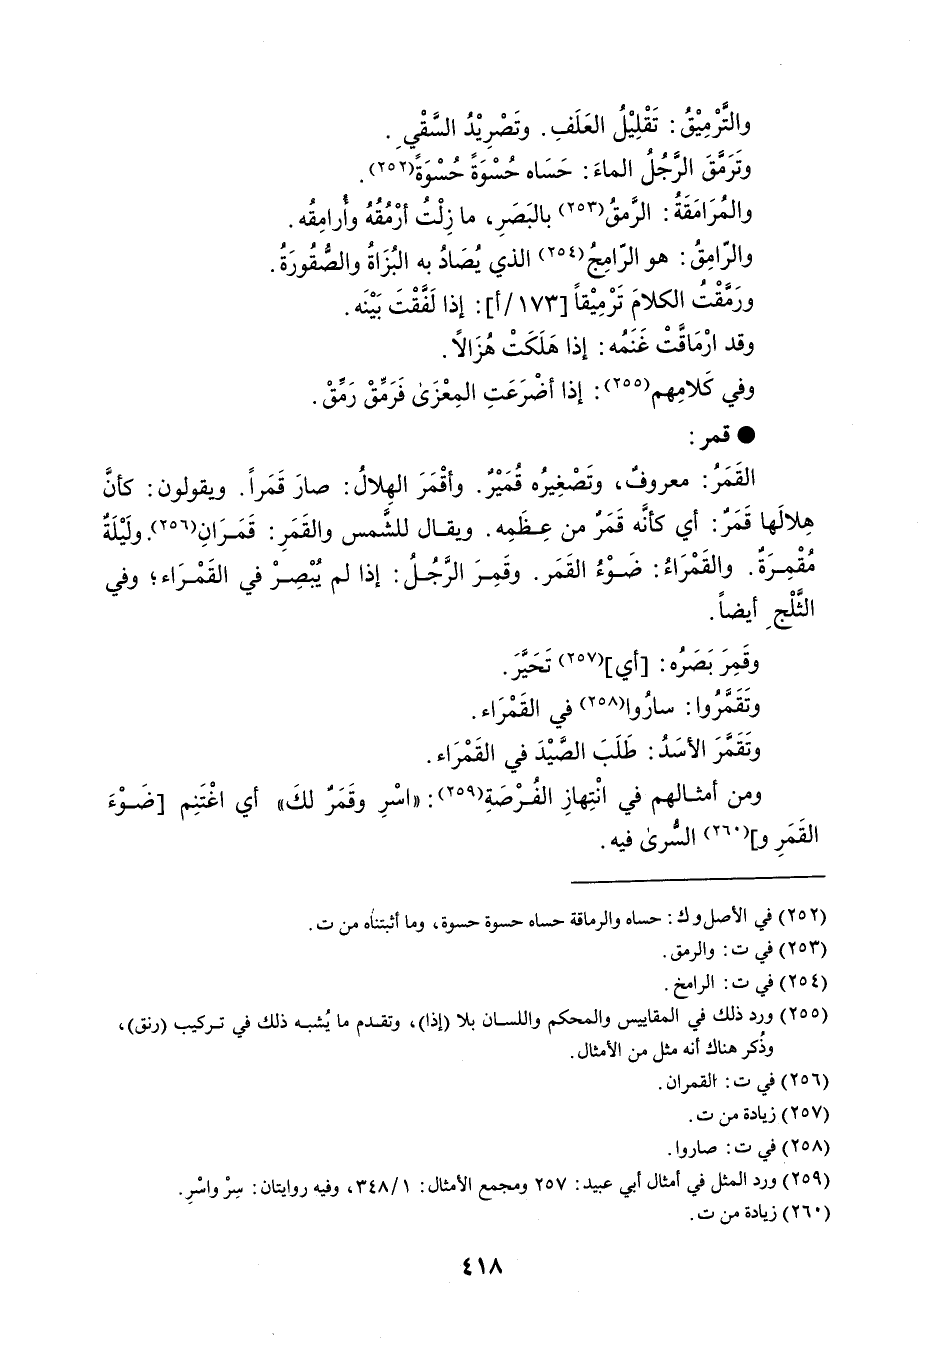 والتَّرْمِيْقُ: تَقْلِيْلُ العَلَفِ. وتَصْرِيْدُ السَّقْيِ.
وتَرَمَّقَ الرَّجُلُ الماءَ: حَسَاه حُسْوَةً حُسْوَةً(٢٥٢).
والمُرَامَقَةُ: الرَّمقُ(٢٥٣) بالبَصَرِ، ما زِلْتُ أرْمُقُهُ وأُرامِقُه.
والرّامِقُ: هو الرّامِجُ(٢٥٤) الذي يُصَادُ به البُزَاةُ والصُّقُورَةُ.
ورَمَّقْتُ الكلامَ تَرْمِيْقاً [١٧٣/أ]: إذا لَفَّقْتَ بَيْنَه.
وقد ارْمَاقَّتْ غَنَمُه: إذا هَلَكَتْ هُزَالاً.
وفي كَلامِهم(٢٥٥): إذا أضْرَعَتِ المِعْزَىٰ فَرَمِّقْ رَمِّقْ.
● قمر:
القَمَرُ: معروفٌ، وتَصْغِيرُه قُمَيْرٌ. وأقْمَرَ الهِلالُ: صارَ قَمَراً. ويقولون: كأنَّ
هِلالَها قَمَرٌ: أي كأنَّه قَمَرٌ من عِظَمِه. ويقال للشَّمس والقَمَرِ: قَمَرَانِ(٢٥٦). ولَيْلَةٌ
مُقْمِرَةٌ. والقَمْرَاءُ: ضَوْءُ القَمَر. وقَمِرَ الرَّجُلُ: إذا لم يُبْصِرْ في القَمْرَاء؛ وفي
الثَّلْجِ أيضاً.
وقَمِرَ بَصَرُه: [أي](٢٥٧) تَحَيَّرَ.
وتَقَمَّرُوا: سارُوا(٢٥٨) في القَمْرَاء.
وتَقَمَّرَ الأسَدُ: طَلَبَ الصَّيْدَ في القَمْرَاء.
ومن أمثالهم في انْتِهازِ الفُرْصَةِ(٢٥٩): «اسْرِ وقَمَرٌ لكَ» أي اغْتَنِم [ضَوْءَ
القَمَرِ و](٢٦٠) السُّرىٰ فيه.
(٢٥٢) في الأصل وك: حساه والرماقة حساه حسوة حسوة، وما أثبتناه من ت.
(٢٥٣) في ت: والرمق.
(٢٥٤) في ت: الرامخ.
(٢٥٥) ورد ذلك في المقاييس والمحكم واللسان بلا (إذا)، وتقدم ما يُشبه ذلك في تركيب (رنق)،
وذُكر هناك أنه مثل من الأمثال.
(٢٥٦) في ت: القمران.
(٢٥٧) زيادة من ت.
(٢٥٨) في ت: صاروا.
(٢٥٩) ورد المثل في أمثال أبي عبيد: ٢٥٧ ومجمع الأمثال: ٣٤٨/١، وفيه روايتان: سِرْ واسْرِ.
(٢٦٠) زيادة من ت.
٤١٨